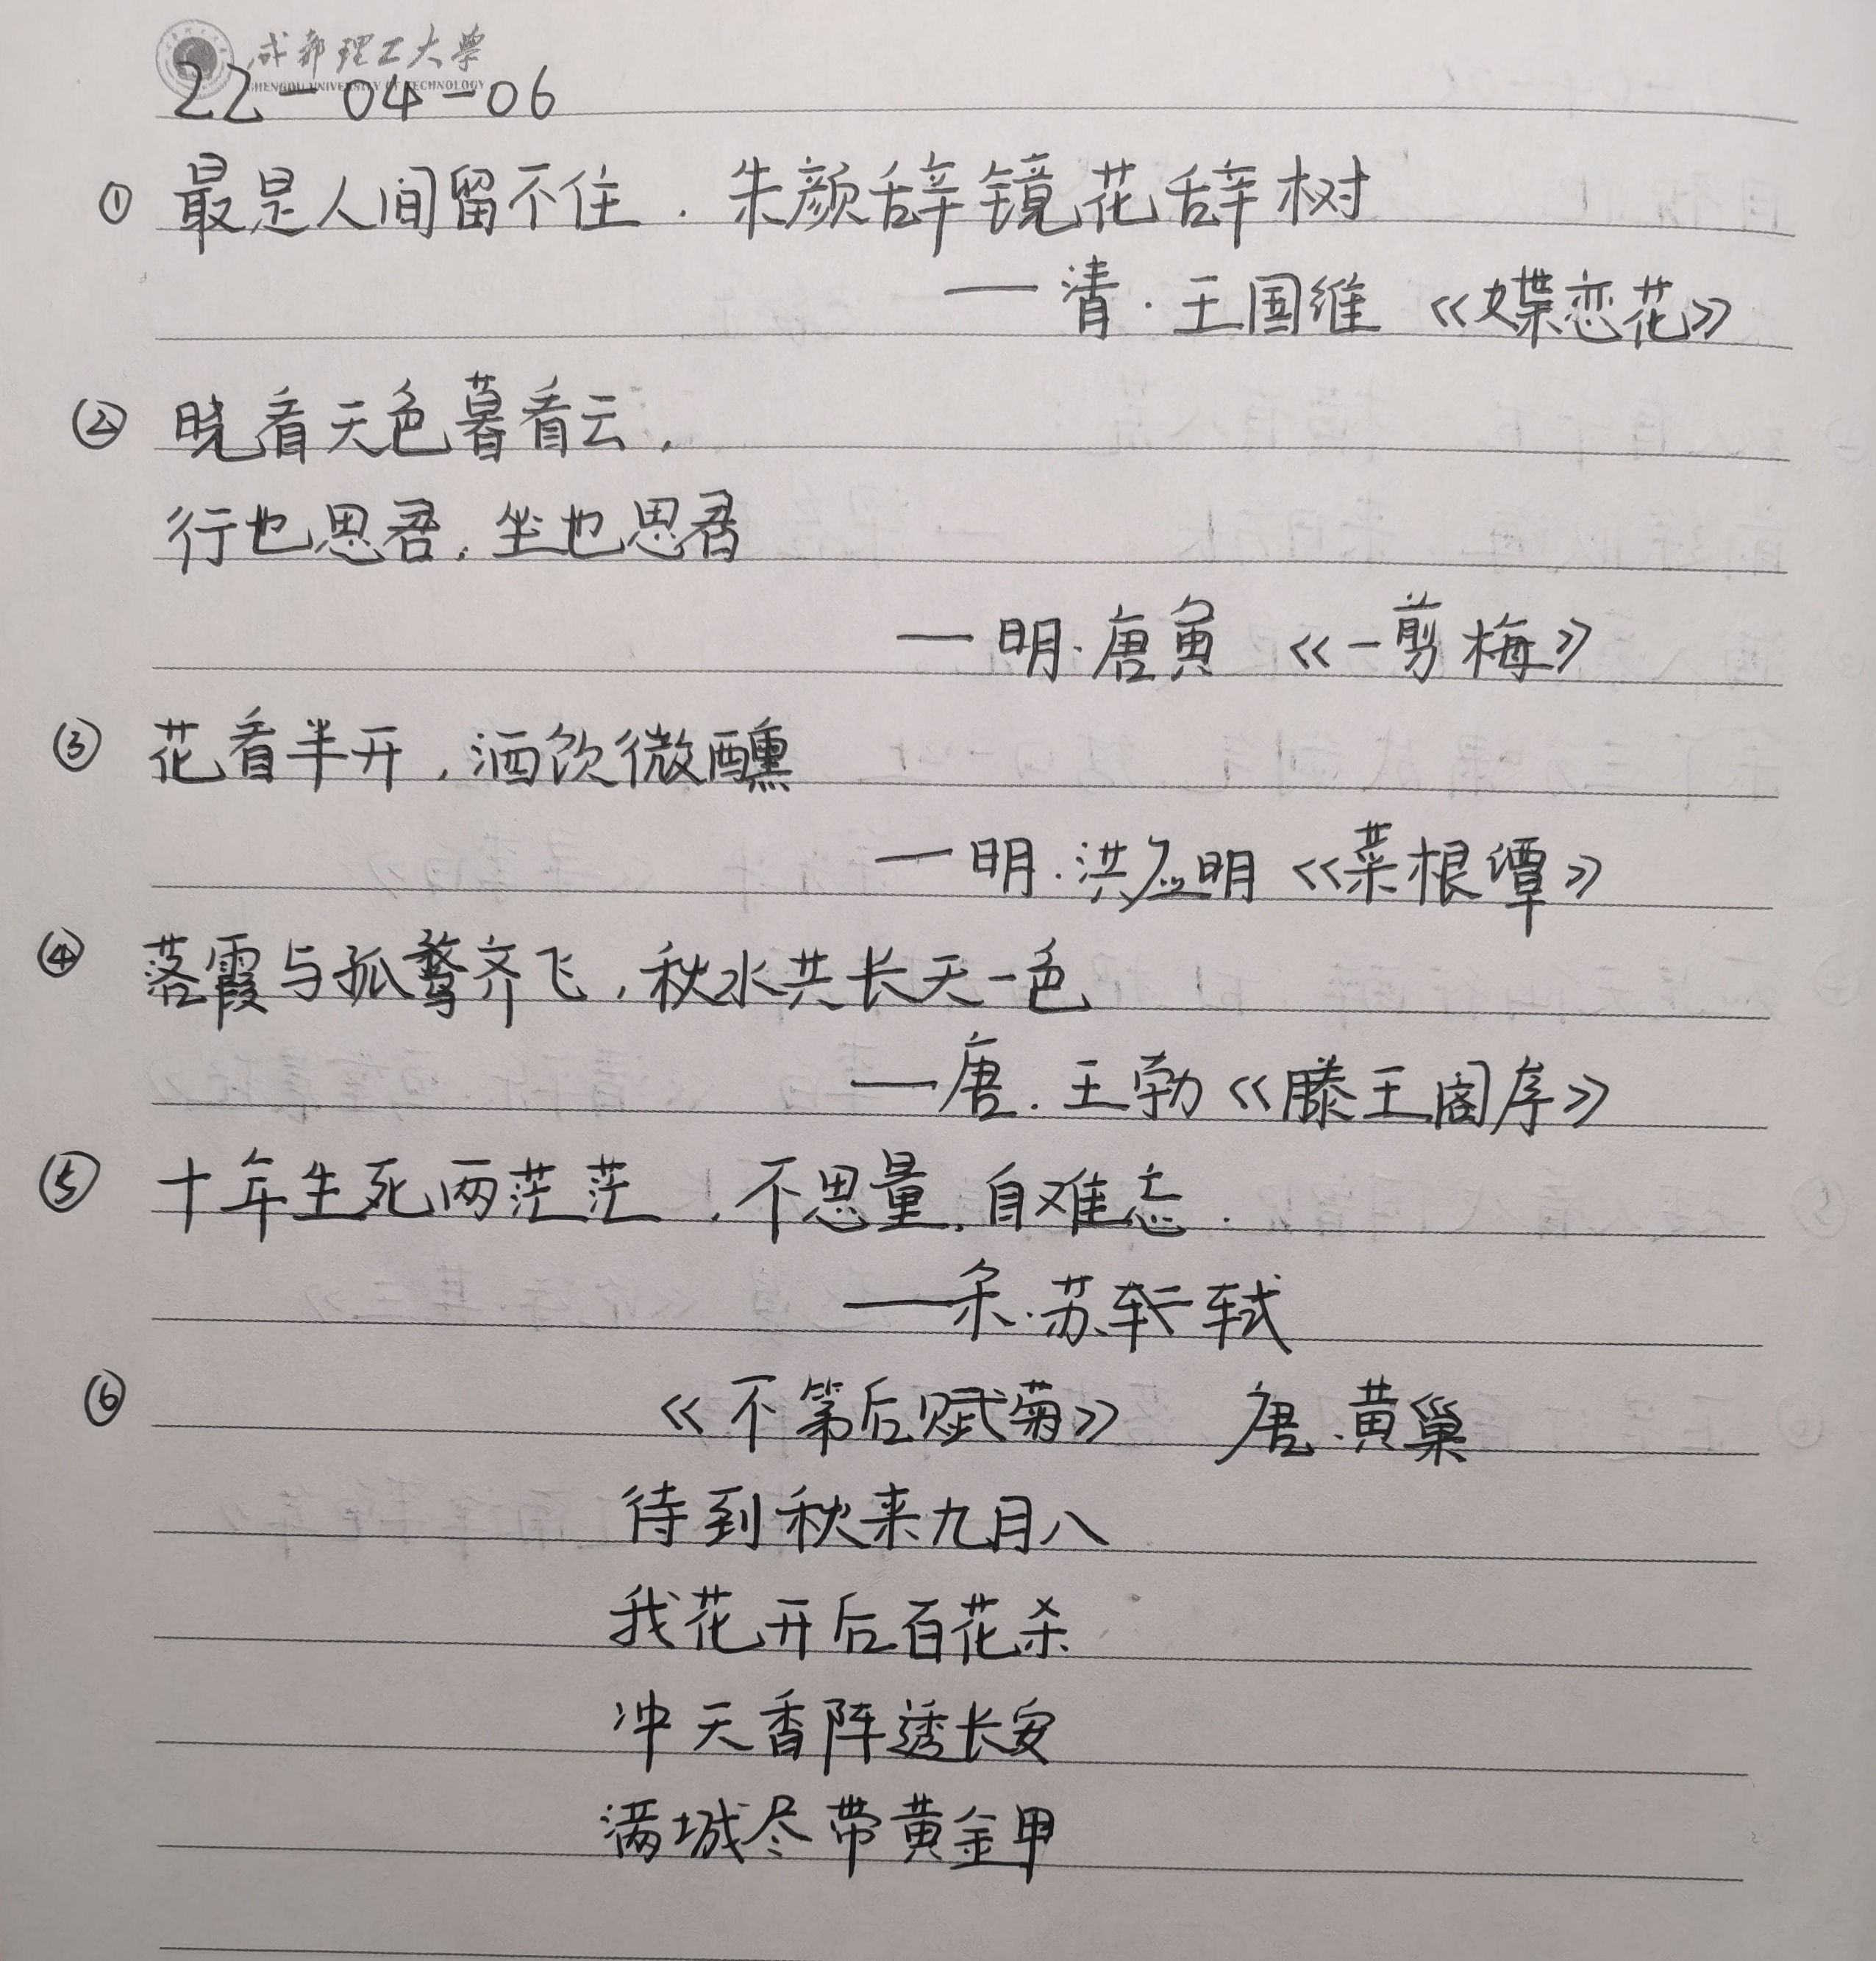 成都理工大学
CHENGDU UNIVERSITY OF TECHNOLOGY
22-04-06
① 最是人间留不住.朱颜辞镜花辞树
—清·王国维《蝶恋花》
② 晓看天色暮看云,
行也思君,坐也思君
—明·唐寅《一剪梅》
③ 花看半开,酒饮微醺
—明·洪应明《菜根谭》
④ 落霞与孤鹜齐飞,秋水共长天一色
—唐.王勃《滕王阁序》
⑤ 十年生死两茫茫,不思量,自难忘.
—宋·苏轼
⑥ 《不第后赋菊》 唐.黄巢
待到秋来九月八
我花开后百花杀
冲天香阵透长安
满城尽带黄金甲